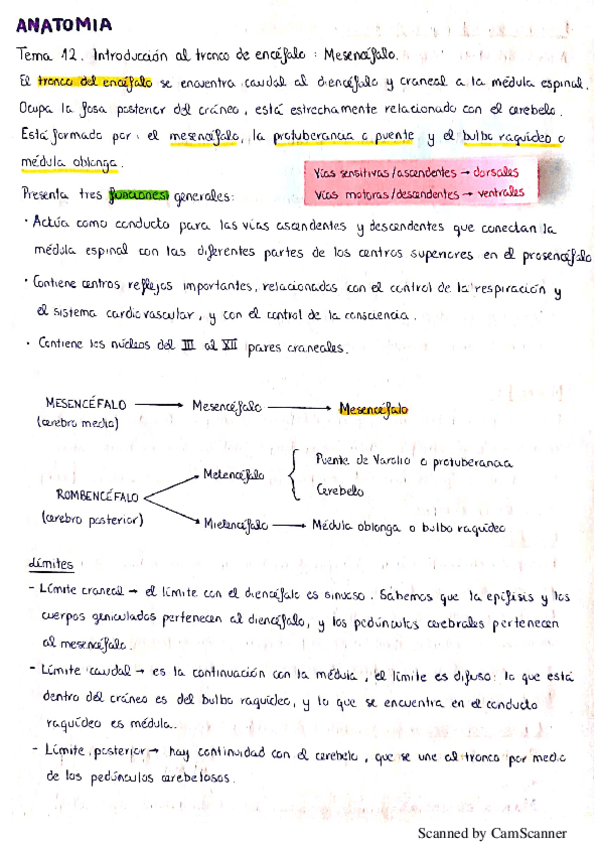 ANATOMIA
Tema 12. Introducción al tronco de encéfalo : Mesencéfalo.
El tronco del encéfalo se encuentra caudal al diencéfalo y craneal a la médula espinal.
Ocupa la fosa posterior del cráneo, está estrechamente relacionado con el cerebelo.
Está formado por: el mesencéfalo, la protuberancia o puente y el bulbo raquídeo o
médula oblonga.
Vías sensitivas/ascendentes → dorsales
Vías motoras/descendentes → ventrales
Presenta tres funciones generales:
· Actúa como conducto para las vías ascendentes y descendentes que conectan la
médula espinal con las diferentes partes de los centros superiores en el prosencéfalo
· Contiene centros reflejos importantes, relacionados con el control de la respiración y
el sistema cardiovascular, y con el control de la consciencia.
· Contiene los núcleos del III al XII pares craneales.
MESENCÉFALO → Mesencéfalo → Mesencéfalo
(cerebro medio)
Metencéfalo { Puente de Varolio o protuberancia
Cerebelo
ROMBENCÉFALO
(cerebro posterior)
Mielencéfalo → Médula oblonga o bulbo raquídeo
Límites
- Límite craneal → el límite con el diencéfalo es sinuoso. Sabemos que la epífisis y los
cuerpos geniculados pertenecen al diencéfalo, y los pedúnculos cerebrales pertenecen
al mesencéfalo.
- Límite caudal → es la continuación con la médula, el límite es difuso: lo que está
dentro del cráneo es del bulbo raquídeo, y lo que se encuentra en el conducto
raquídeo es médula.
- Límite posterior → hay continuidad con el cerebelo, que se une al tronco por medio
de los pedúnculos cerebelosos.
Scanned by CamScanner